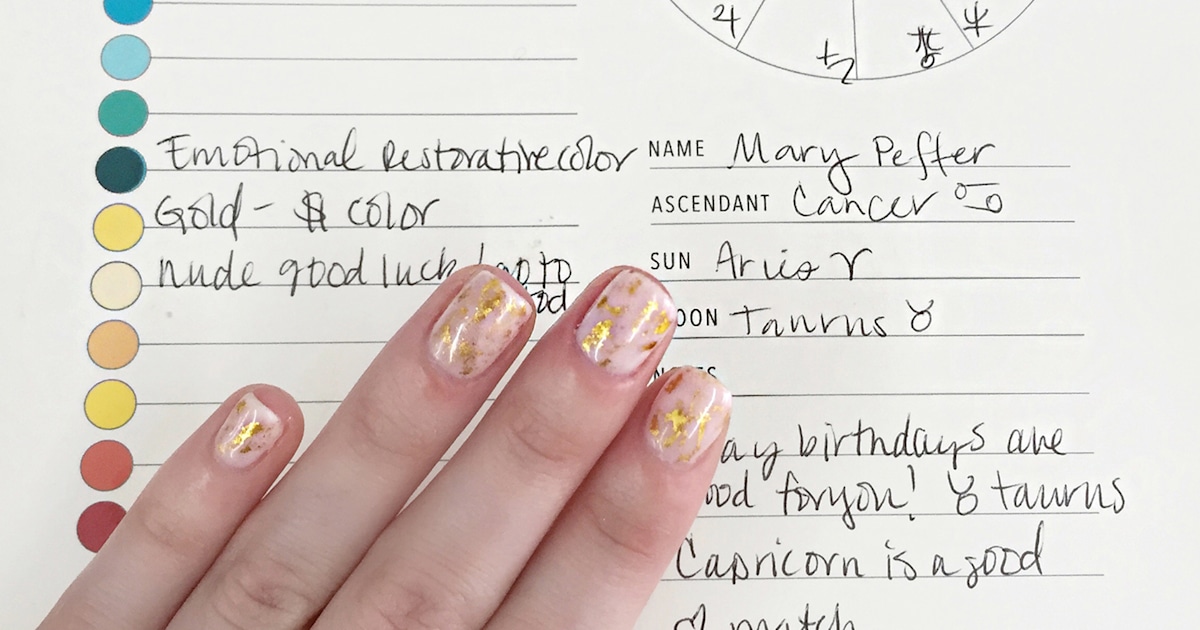 Emotional Restorative color
Gold - $ color
nude good luck
NAME Mary Peffer
ASCENDANT Cancer ♋
SUN Aries ♈
Taurus ♉
birthdays are
for you! ♉ taurus
Capricorn is a good
♡ match